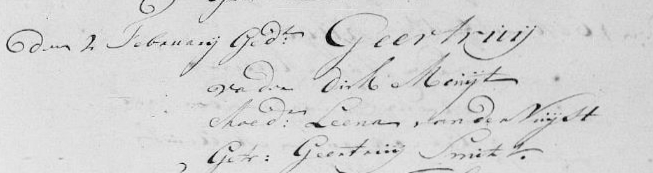 den 2 Februarij Gedt: Geertruij
vader Dirk Meuijt
Moedr: Leena van der Nuijst
Getr: Geertruij Smitt